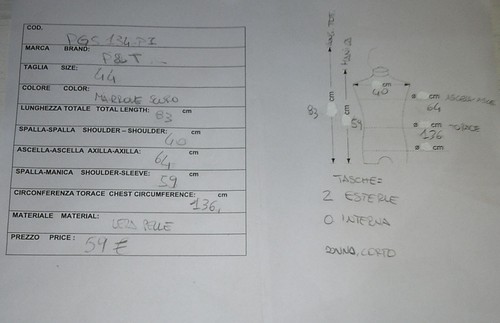 COD.
PGS 134 PI
MARCA BRAND:
P&T ...
TAGLIA SIZE:
44
COLORE COLOR:
MARRONE SCURO
LUNGHEZZA TOTALE TOTAL LENGTH: cm
83
SPALLA-SPALLA SHOULDER – SHOULDER: cm
40
ASCELLA-ASCELLA AXILLA-AXILLA: cm
64
SPALLA-MANICA SHOULDER-SLEEVE: cm
59
CIRCONFERENZA TORACE CHEST CIRCUMFERENCE: cm
136,
MATERIALE MATERIAL:
VERA PELLE
PREZZO PRICE :
59 €
MANICA
cm
40
cm
83
cm
59
ø cm
64
ø cm TORACE
136
cm
TASCHE=
2 ESTERNE
0 INTERNA
DONNA, CORTO